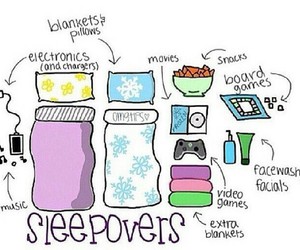 blankets &
pillows
electronics
(and chargers)
movies
snacks
board
games
music
facewash
facials
video
games
extra
blankets
sleepovers